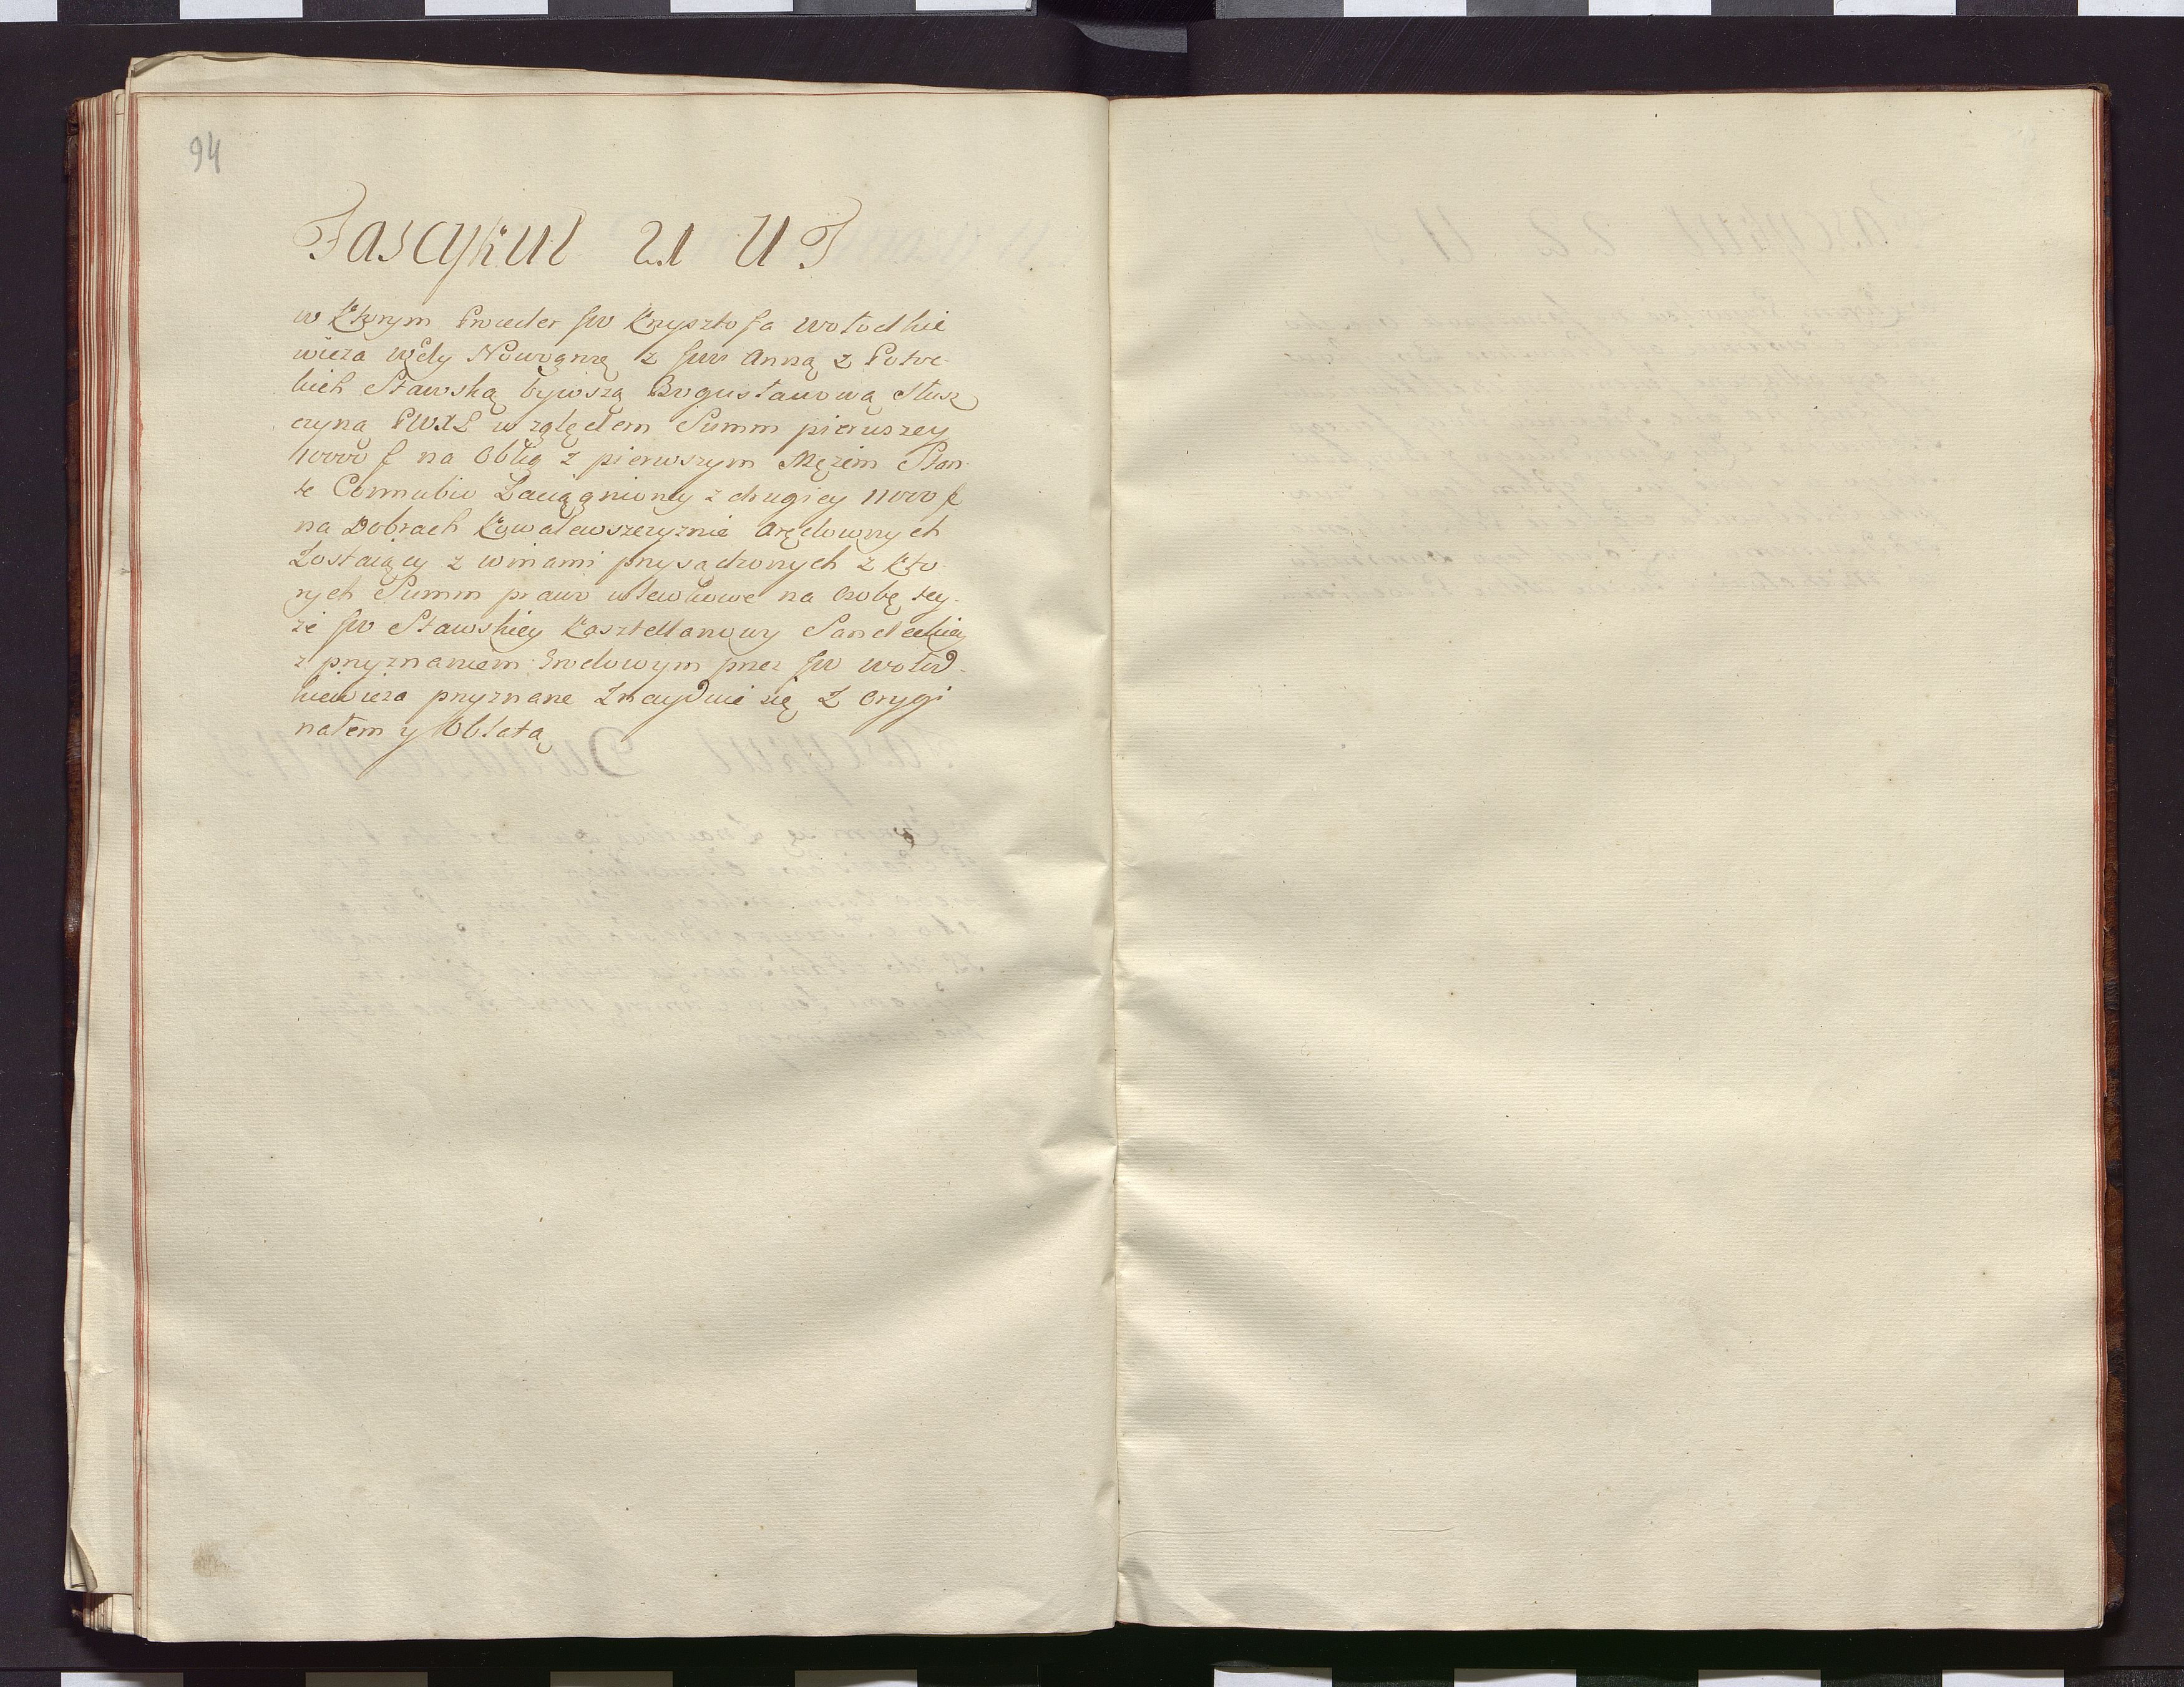 94
Fascykuł 21 U J
w Którym Proceder JW Krysztofa Wołodkie
wicza Wdy Nowogrzę z JW Anną z Potoc-
kich Stawską bywszą Bogusławową Słusz
czyną PWXL względem Summ pierwszey
10000 f na Oblig z pierwszym Mężem Stan-
te Connubio Zaciągnioney z drugiey 11000 f
na Dobrach Kowalewszczyznie Arędownych
Zostaiącey z winami przysądzonych z Kto-
rych Summ prawo wlewkowe na Osobę tey-
że JW Stawskiey Kasztellanowy Sandeckiey
z przyznaniem Grodowym przez JW Wołod-
kiewicza przyznane Znayduie się z Orygi
nałem y Oblatą